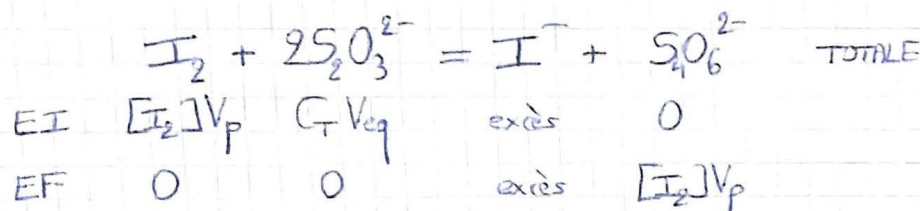 I₂ + 2S₂O₃²⁻ = I⁻ + S₄O₆²⁻ TOTALE
EI [I₂]Vp C_T Veq excès 0
EF 0 0 excès [I₂]Vp